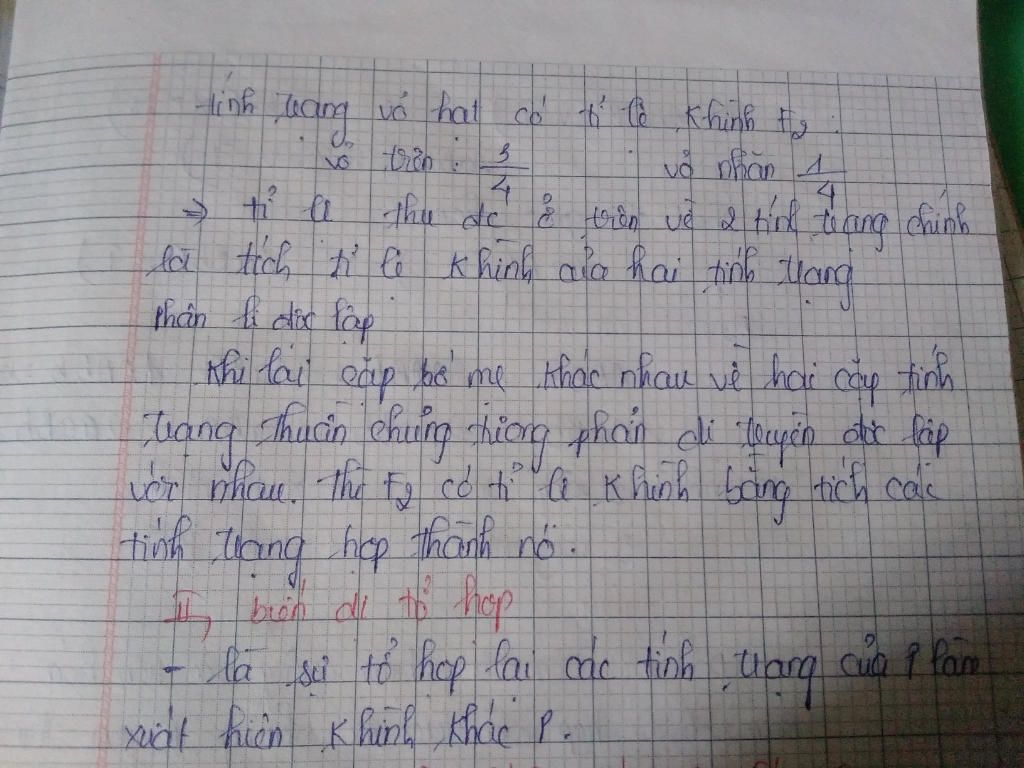 tính trạng vỏ hạt có tỉ lệ K hình F2 :
vỏ trơn : 3/4 vỏ nhăn 1/4
⇒ tỉ lệ thu dc ở trên về 2 tính trạng chính
là tích tỉ lệ K hình của hai tính trạng
phân li độc lập
Khi lai cặp bố mẹ khác nhau về hai cặp tính
trạng thuần chủng tương phản di truyền độc lập
với nhau. Thì F2 có tỉ lệ K hình bằng tích các
tính trạng hợp thành nó.
II, biến dị tổ hợp
- là sự tổ hợp lại các tính trạng của P làm
xuất hiện K hình khác P.